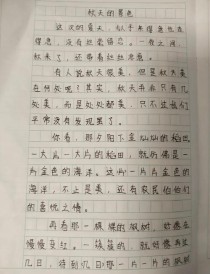 秋天的景色
这次的夏天，似乎来得急也去
得急，没有丝毫留恋。一夜之间，
秋来了，还带着丝丝寒意。
有人说秋天很美，但是秋天美
在何处呢？其实，秋天并不只有几
处美，而是处处都美，只不过我们
平常没有发现罢了。
你看，那夕阳下金灿灿的稻田
一大片一大片的稻田，就仿佛是一
片金色的海洋。这片一片片金色的
海洋，不止是美，还有农民伯伯们
的喜悦之情。
再看那一棵棵的枫树，好像在
慢慢变红。一簇簇的，就好像再过
几日，待到几日那一片一片的枫树